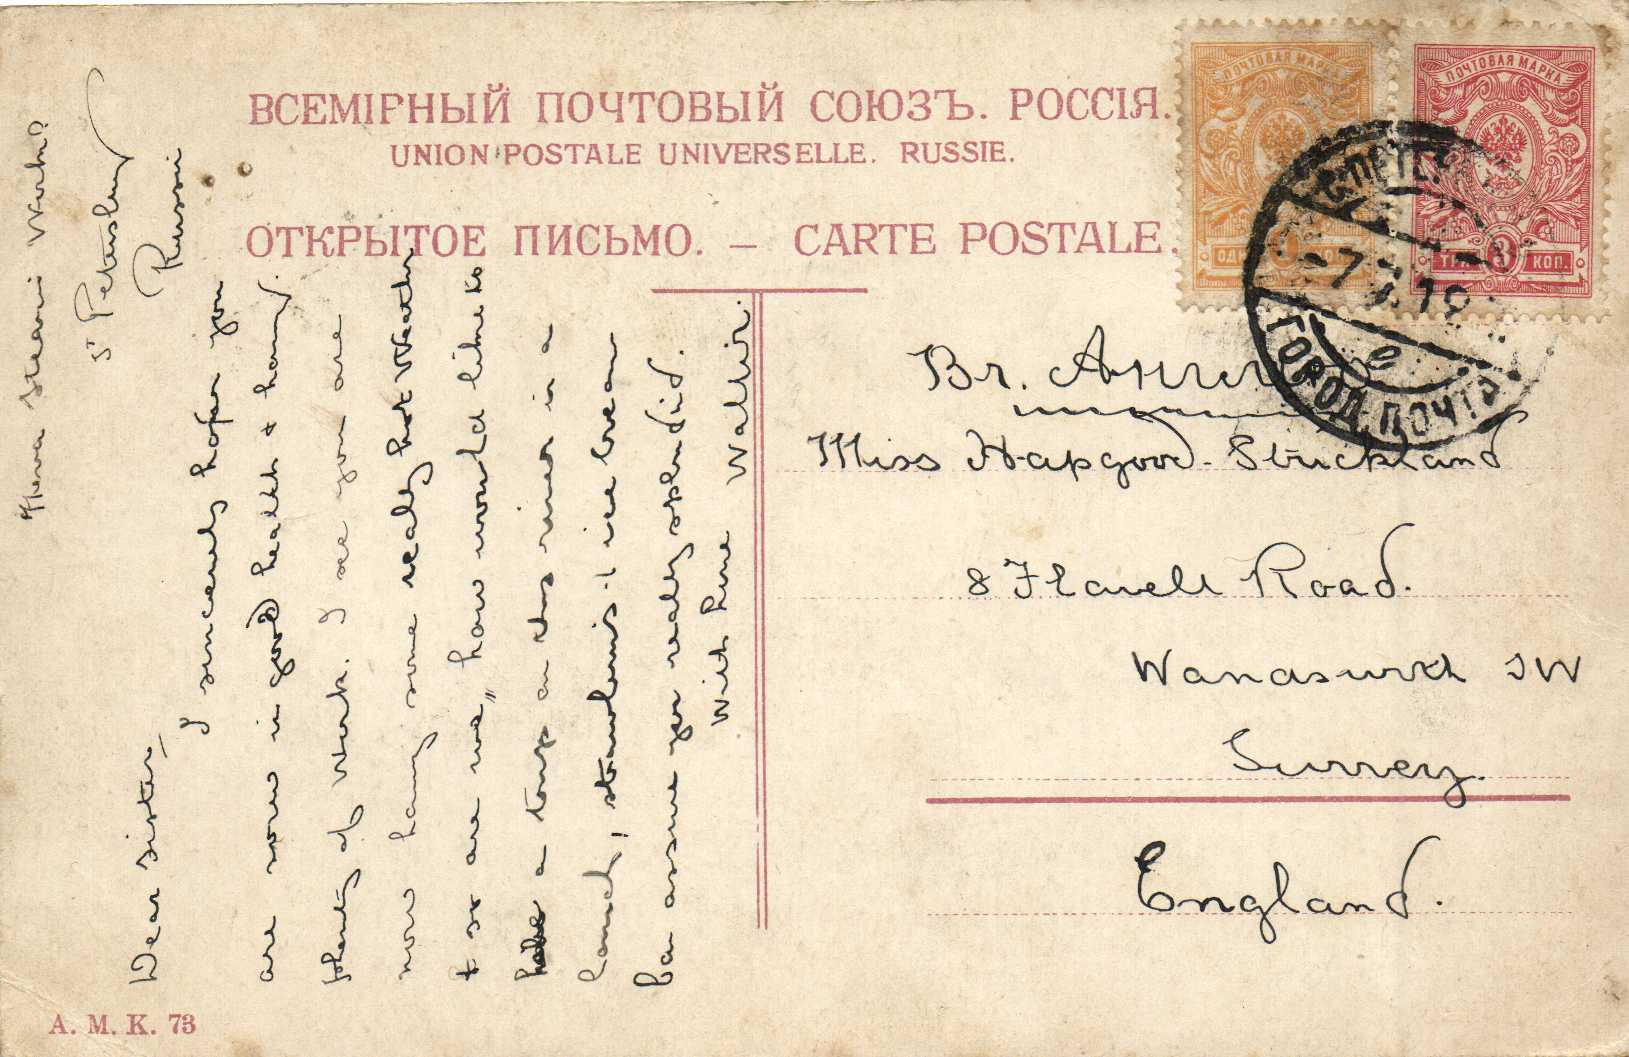 ВСЕМІРНЫЙ ПОЧТОВЫЙ СОЮЗЪ. РОССІЯ.
UNION POSTALE UNIVERSELLE. RUSSIE.
ОТКРЫТОЕ ПИСЬМО. — CARTE POSTALE.
ПОЧТОВАЯ МАРКА
ПОЧТОВАЯ МАРКА
3 КОП.
С.ПЕТЕР
-7.7.19
е
ГОРОД. ПОЧТА
Neva Steam Works
St Petersburg
Russia
Dear Sister,
I sincerely hope you
are now in good health & having
plenty of work. I see you are
now having some really hot weather
& so are we, how would like to
take a tour on this river in a
launch, strawberries & ice cream
can assure you really splendid.
With love Walter.
Br.
Miss Hapgood-Strickland
8 Flavell Road.
SW
Surrey.
England.
A. M. K. 73